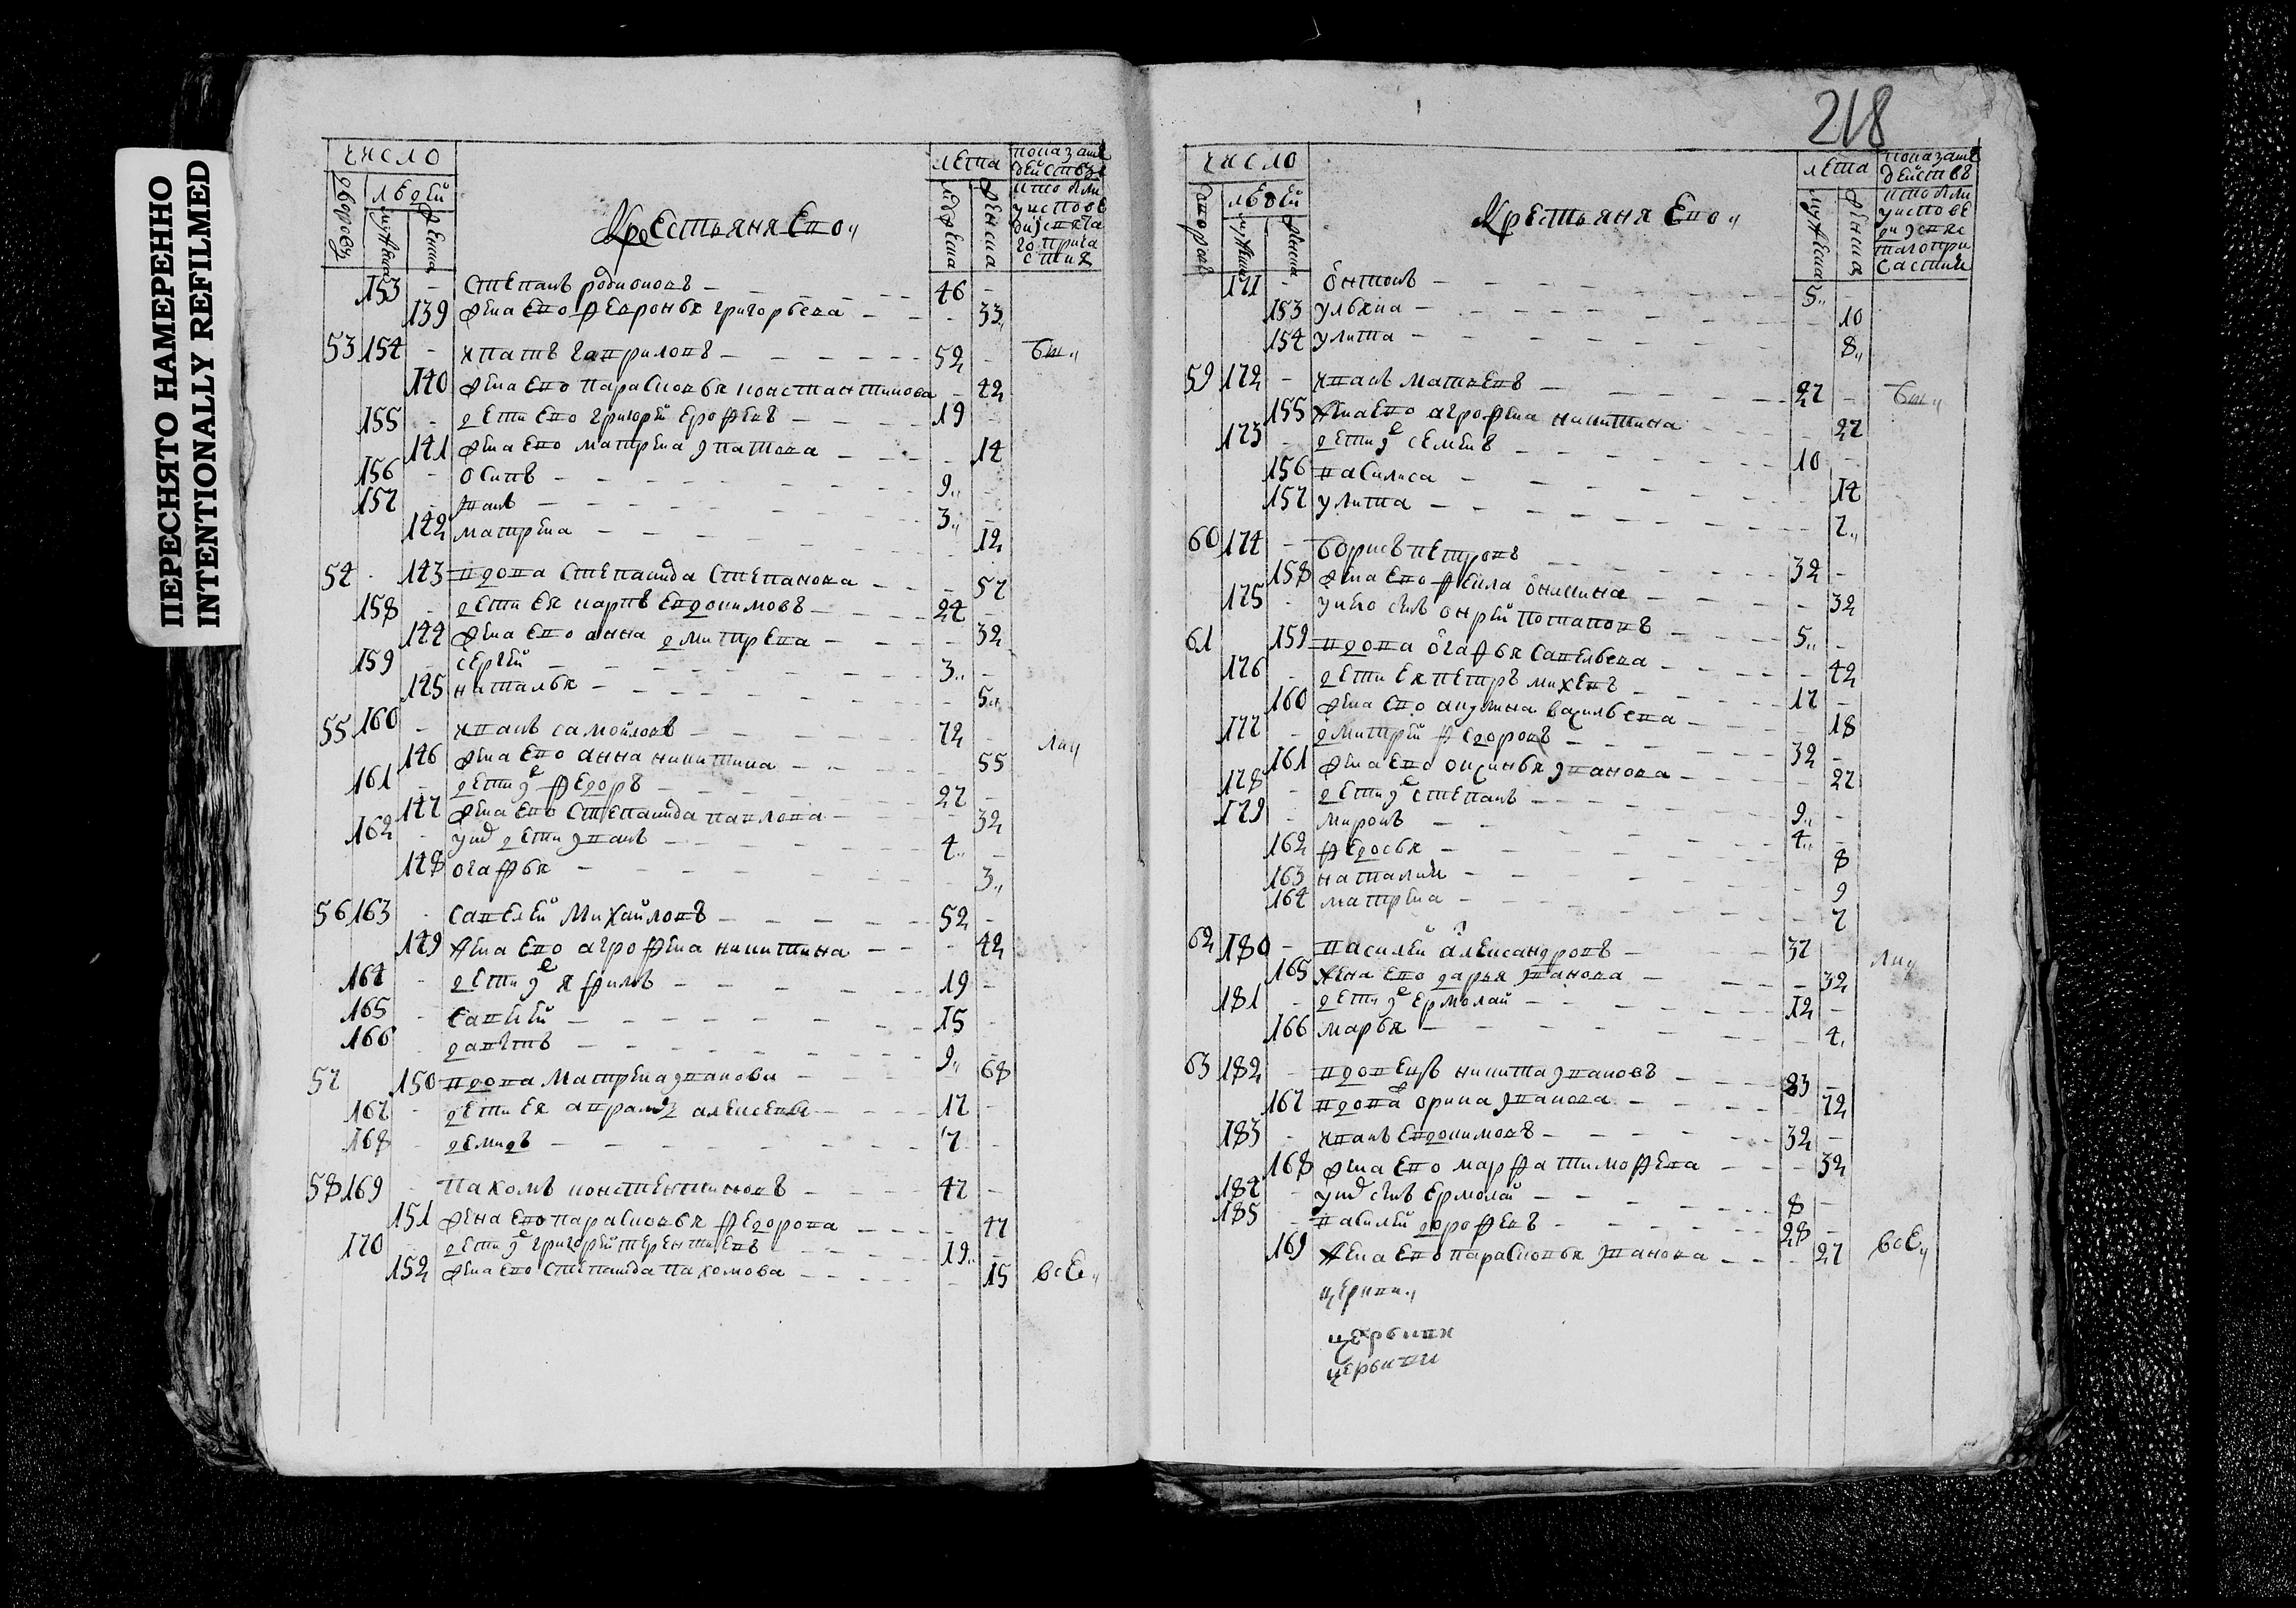 ПЕРЕСНЯТО НАМЕРЕННО
INTENTIONALLY REFILMED
число
лета
людей
Крестьяня Ево
153 Степанъ родионовъ 46
139 жена Ево Февронья григорьева 33
53 154 Ипатъ гавриловъ 52
140 жена Ево парасковья константинова 42
155 дети Ево григорей Ерофеевъ 19
141 жена Ево матрена ипатова 14
156 осипъ 9
157 иванъ 3
142 матрена 12
54 143 вдова Степанида Степанова 57
158 дети Ея карпъ Евдокимовъ 24
144 жена Ево анна дмитрева 32
159 сергей 3
145 наталья 5
55 160 иванъ самойловъ 72
146 жена Ево анна никитина 55
161 дети ихъ Федоръ 27
147 жена Ево Степанида павлова 32
162 у них дети иванъ 4
148 огафья 3
56 163 Савелей Михайловъ 52
149 жена Ево агрофена никитина 42
164 дети их яфимъ 19
165 Савелей 15
166 давытъ 9
57 150 вдова Матрена иванова 68
167 дети Ея аврамъ алексеевы 17
168 демидъ 7
58 169 пахомъ констентиновъ 47
151 жена Ево парасковья Федорова 47
170 дети их григорей терентиевъ 19
152 жена Ево Степанида пахомова 15 все
218
число
лета
людей
Крестьяня Ево
171 онтонъ 5
153 ульяна 10
154 улита 8
59 172 иванъ матвевъ 27
155 жена Ево агрофена никитина 27
173 дети их семенъ 10
156 василиса 14
157 улита 7
60 174 борисъ петровъ 32
158 жена Ево фекла оникина 32
175 у него сынъ онрей потаповъ 5
61 159 вдова огафья Савельева 42
176 дети Ея петръ михевъ 17
160 жена Ево акулина васильева 18
177 дмитрей Федоровъ 32
161 жена Ево оксинья иванова 27
178 дети их степанъ 9
179 миронъ 4
162 федосья 8
163 наталия 9
164 матрена 7
62 180 василей александровъ 37
165 жена Ево дарья иванова 32
181 дети их Ермолай 12
166 марья 4
63 182 вдовецъ никита ивановъ 83
167 вдова орина иванова 72
183 иванъ Евдокимовъ 32
168 жена Ево марфа тимофева 32
184 у них сынъ Ермолай 8
185 василей дорофевъ 28
169 жена Ево парасковья иванова 27 все